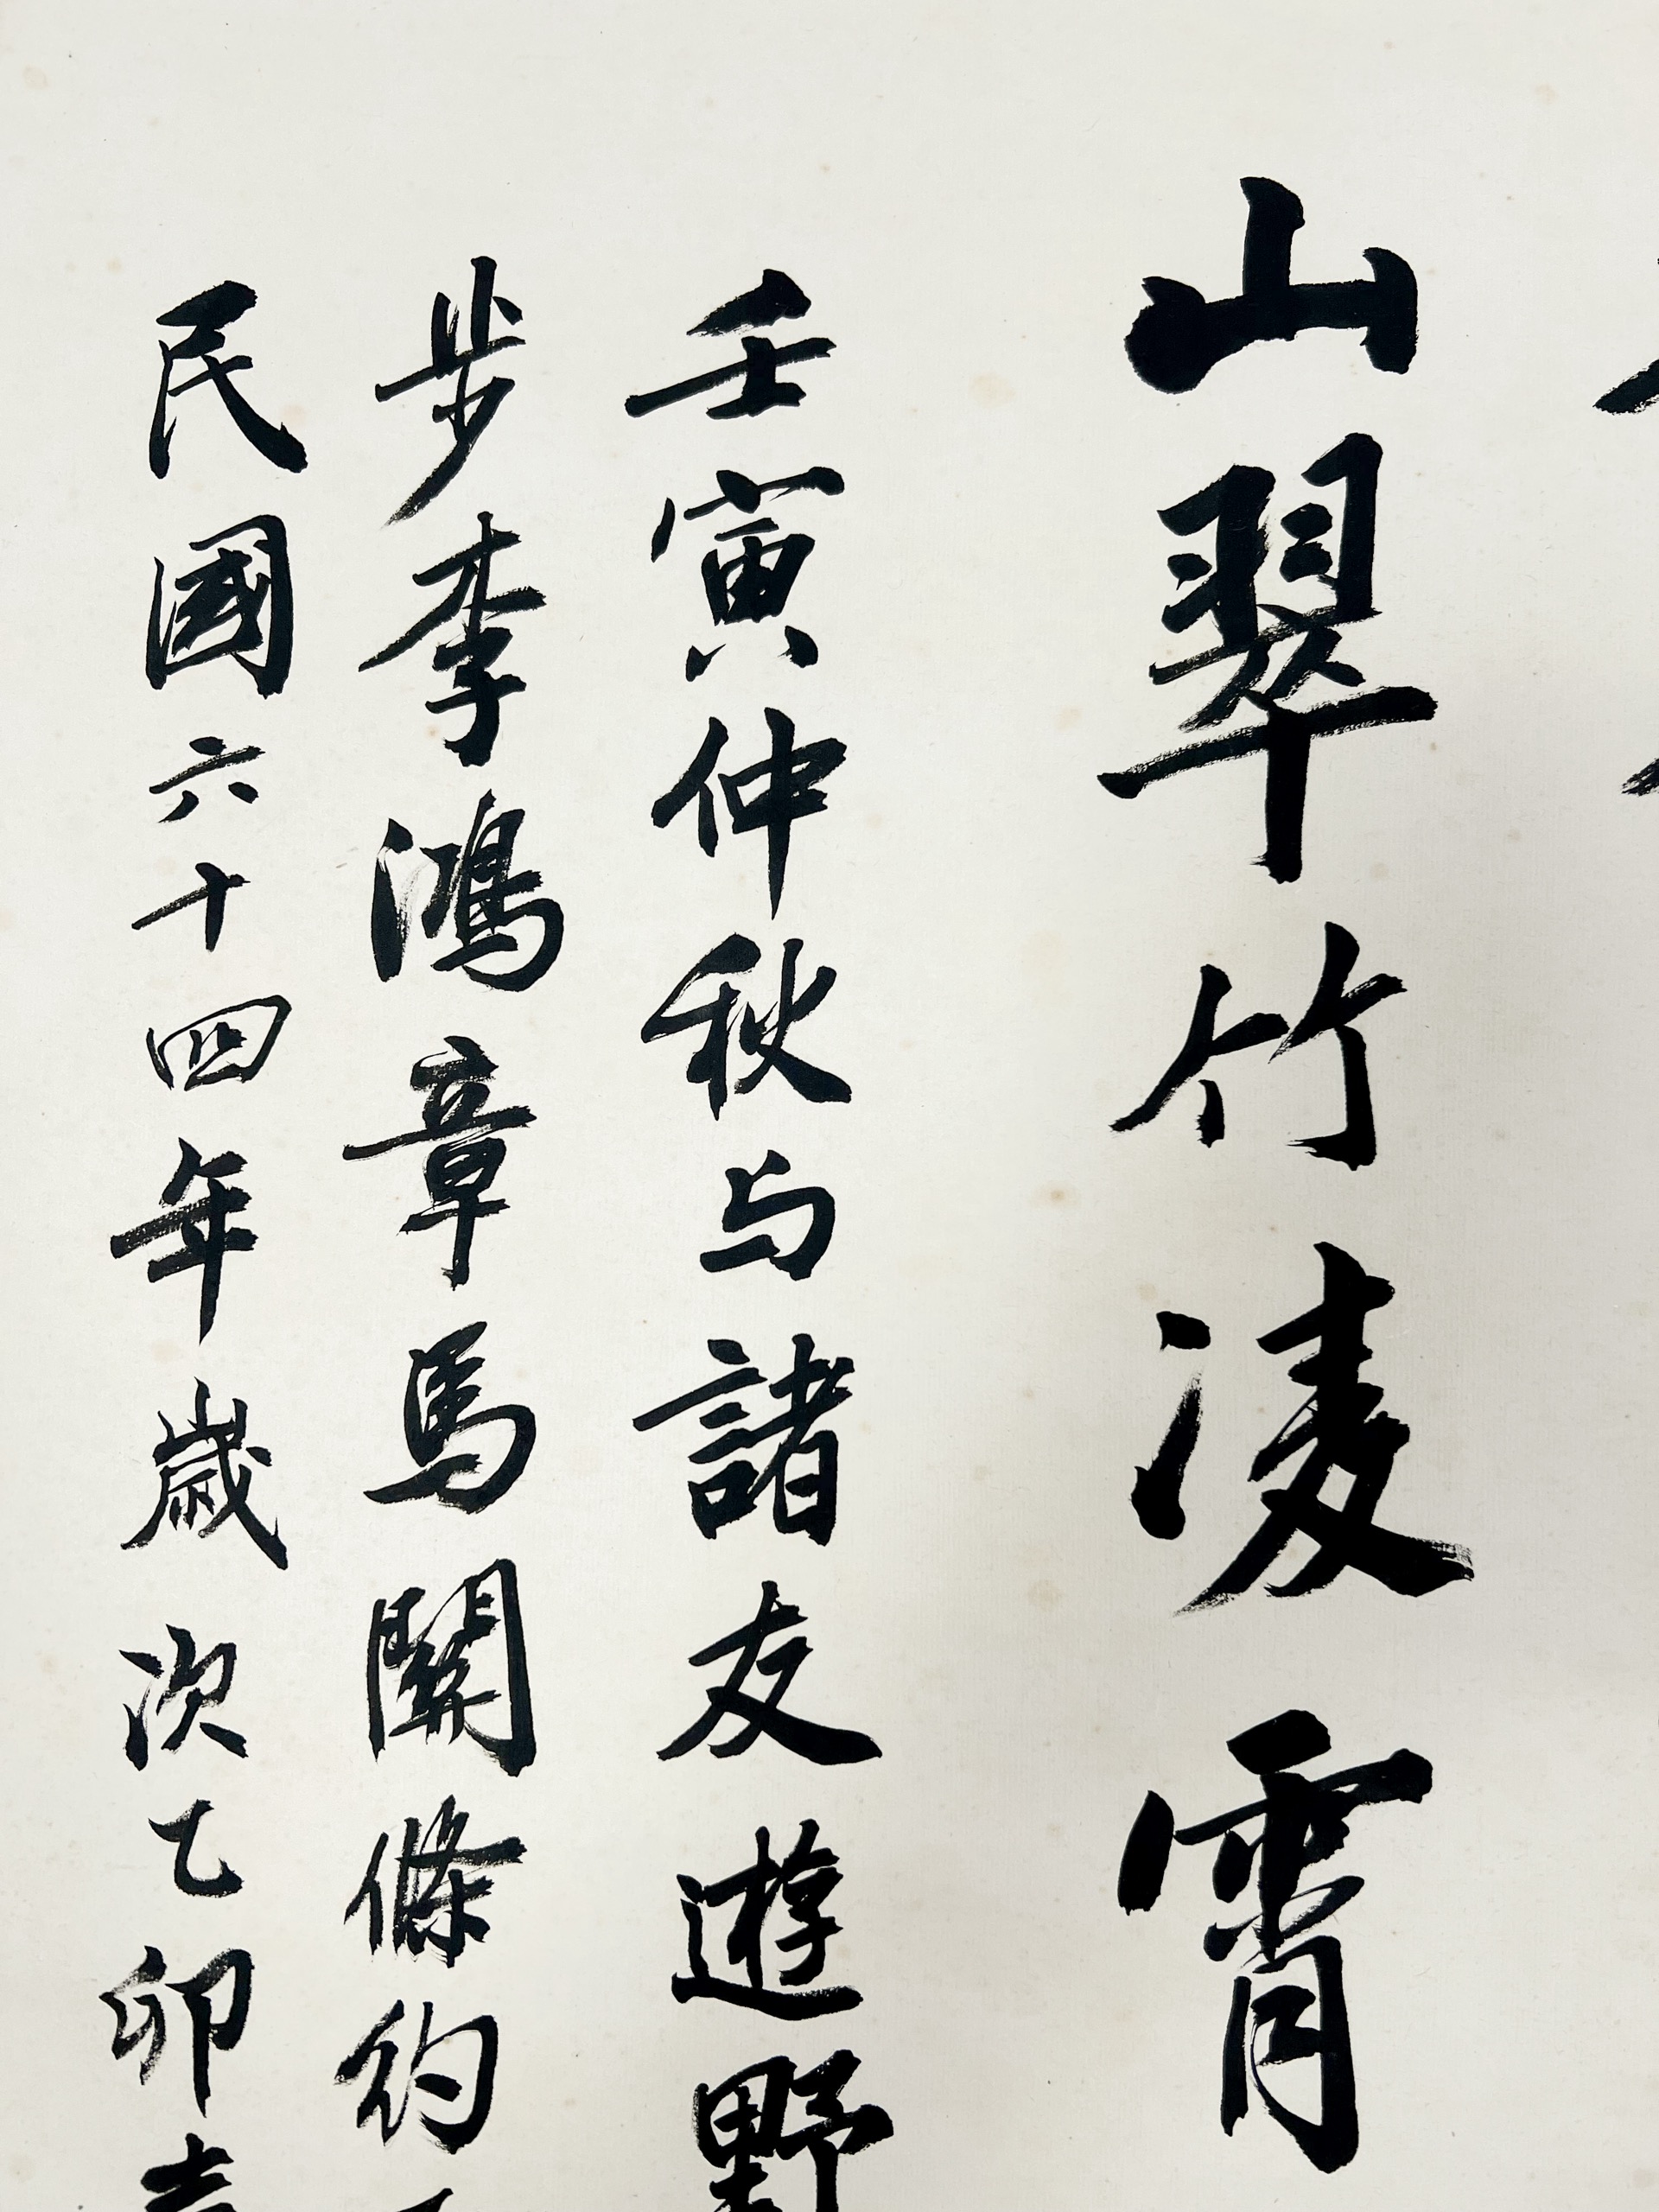 山翠竹凌霄
壬寅仲秋与諸友遊野
步李鴻章馬關條約
民國六十四年歲次乙卯